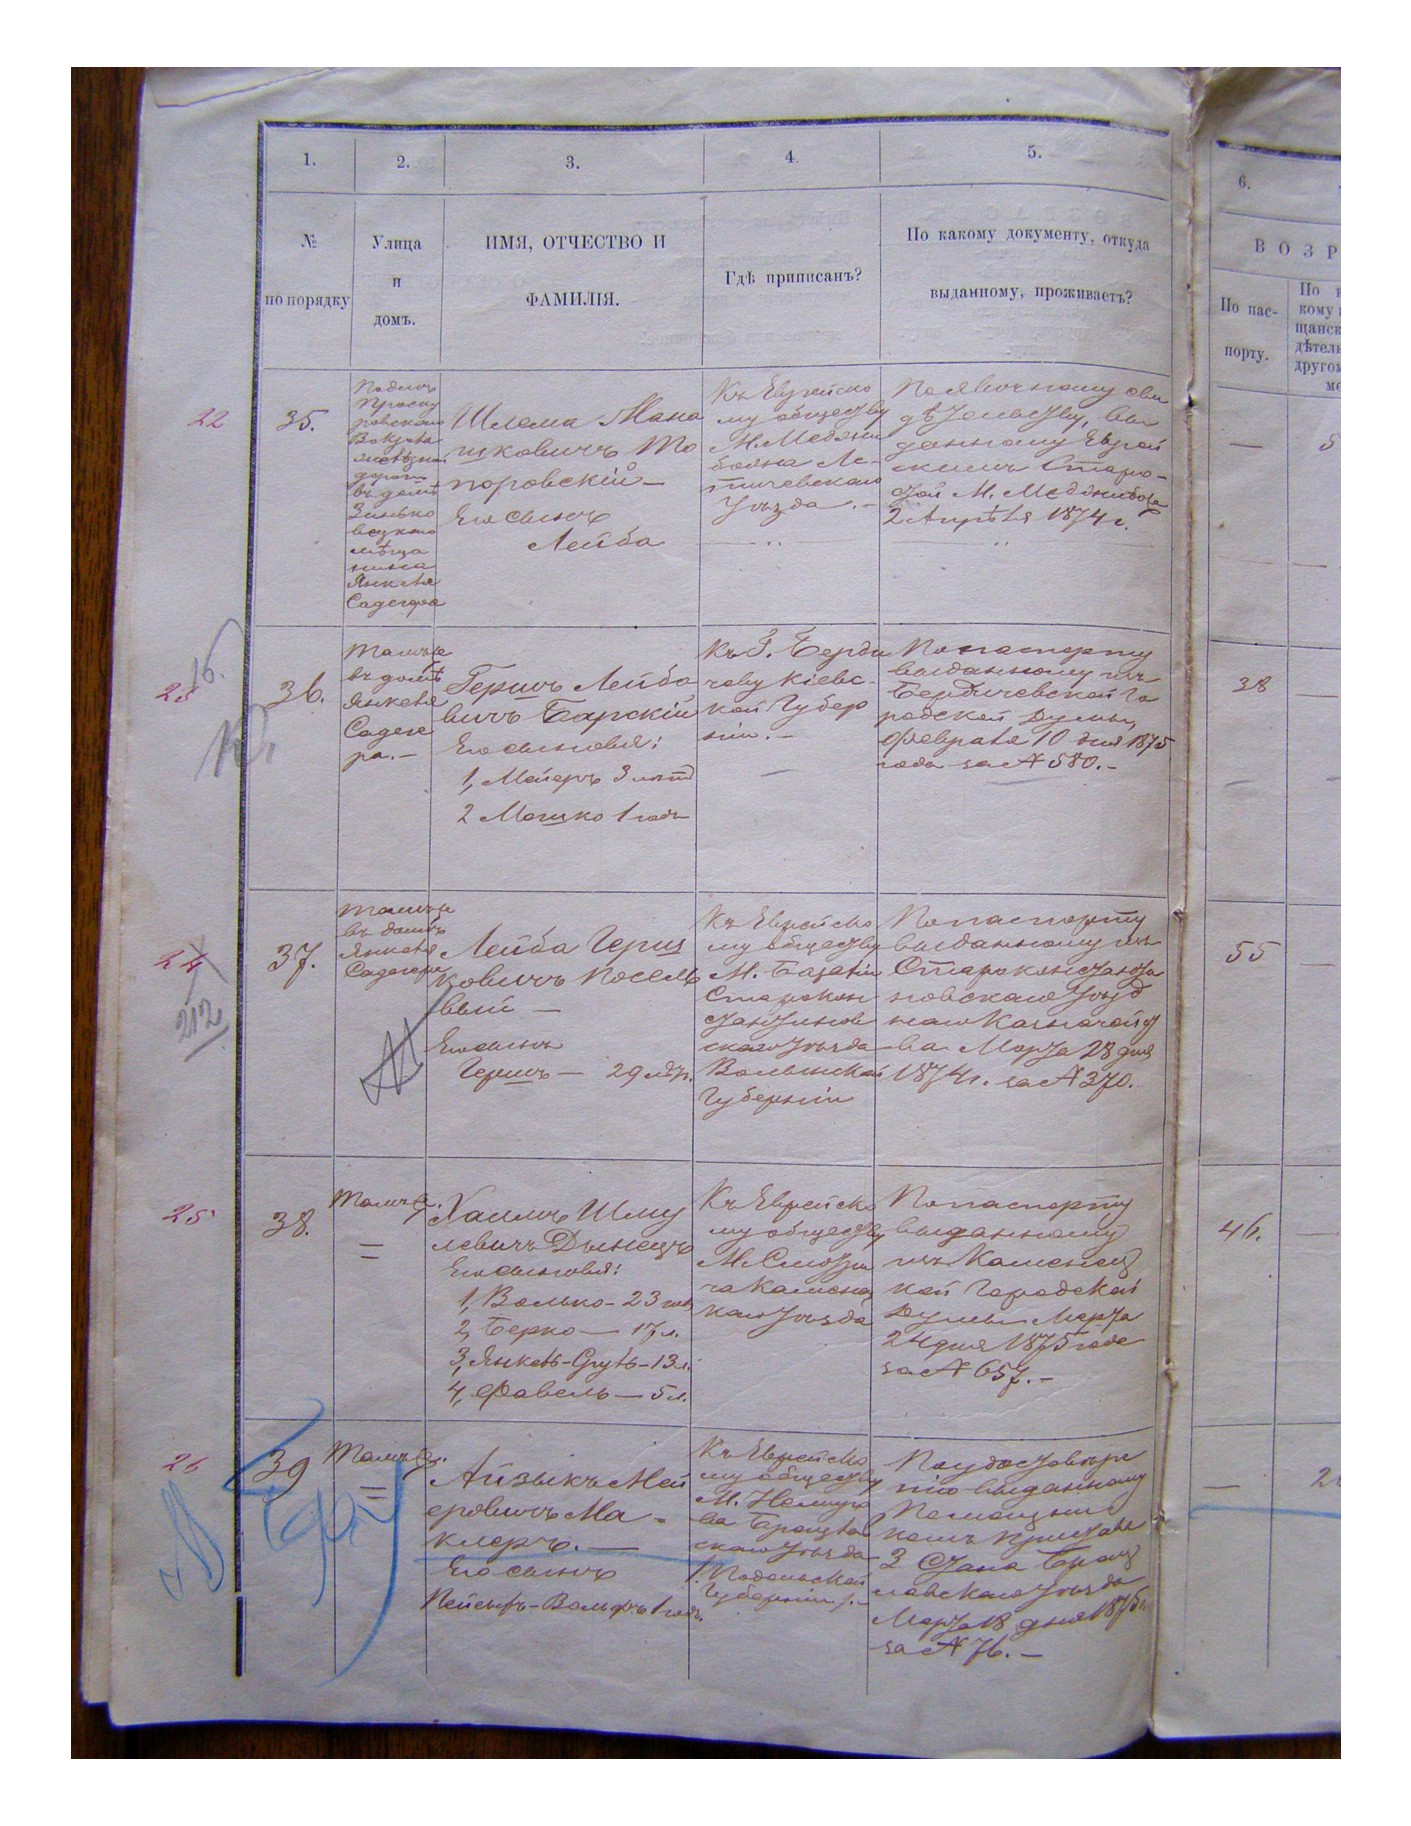 1.
2.
3.
4.
5.
6.
№
по порядку
Улица
и
домъ.
ИМЯ, ОТЧЕСТВО И
ФАМИЛІЯ.
Гдѣ приписанъ?
По какому документу, откуда
выданному, проживаетъ?
ВОЗР
По пас-
порту.
По
кому
щанск
дѣтел
другом
22
35.
въ домѣ
Зинько
вецкаго
мѣща
нина
Янкеля
Садегера
Шлема Мана
шковичъ То
поровскій —
Его сынъ
Лейба
Къ Еврейско
му обществу
М. Меджи
божа Ле-
тичевскаго
Уѣзда. -
данному Еврей
скимъ Старо-
стой М. Меджибожа
2 Апрѣля 1874 г.
—
5
23
16.
36.
Тамъже
въ домѣ
Янкеля
Садеге
ра. —
Гершъ Лейбо
вичъ Барскій
Его сыновья:
1, Мейеръ 3 лѣтъ
2 Мошко 1 годъ
Къ Г. Берди
чеву Кіевс-
кой Губер
ніи. —
По паспорту
выданному изъ
Бердичевской Го
родской Думы,
Февраля 10 дня 1875
года за № 580. —
38
—
24
212
37.
Тамъже
въ домѣ
Янкеля
Садегера
Лейба Герш
ковичъ Посель
вый —
Его сынъ
Гершъ — 29 лѣтъ.
Къ Еврейско
му обществу
М. Базаліи
Старокон
стантинов
скаго Уѣзда
Волынской
Губерніи
По паспорту
выданному изъ
Староконстанти
новскаго Уѣзд
наго Казначейст
ва Марта 28 дня
1874 г. за № 370.
55
—
25
38.
Тамъже.
=
Хаимъ Шму
левичъ Дынецъ
Его сыновья:
1, Волько — 23 год.
2, Берко — 17 л.
3, Янкель-Сруль — 13 л.
4, Фавель — 5 л.
Къ Еврейско
му обществу
М. Смотри
ча Каменец
каго Уѣзда
По паспорту
выданному
изъ Каменец
кой Городской
Думы Марта
24 дня 1875 года
за № 657. —
46.
—
26
39
Тамъже.
=
Айзыкъ Мей
еровичъ Ма-
клеръ. —
Его сынъ
Пейсыхъ-Вольфъ 1 годъ.
Къ Еврейско
му обществу
М. Немиро
ва Брацлав
скаго Уѣзда
Подольской
Губерніи. —
По удостовѣре
нію выданному
Помощни
комъ Пристава
2 Стана Брац
лавскаго Уѣзда
Марта 18 дня 1875 г.
за № 76. —
—